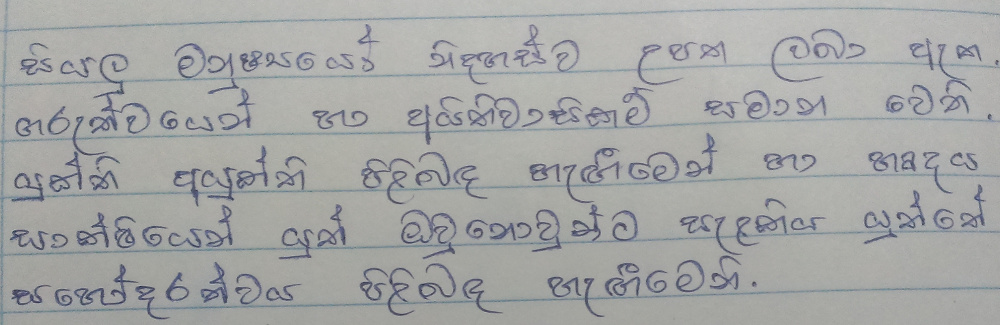 සියලු මනුෂ්‍යයෝ නිදහස්ව උපත ලබා ඇත.
ගරුත්වයෙන් හා අයිතිවාසිකම් සමාන වෙති.
යුක්ති අයුක්ති පිළිබඳ හැඟීමෙන් හා හෘදය
සාක්ෂියෙන් යුත් ඔවුනොවුන්ට සැලකිය යුත්තේ
සහෝදරත්වය පිළිබඳ හැඟීමෙනි.